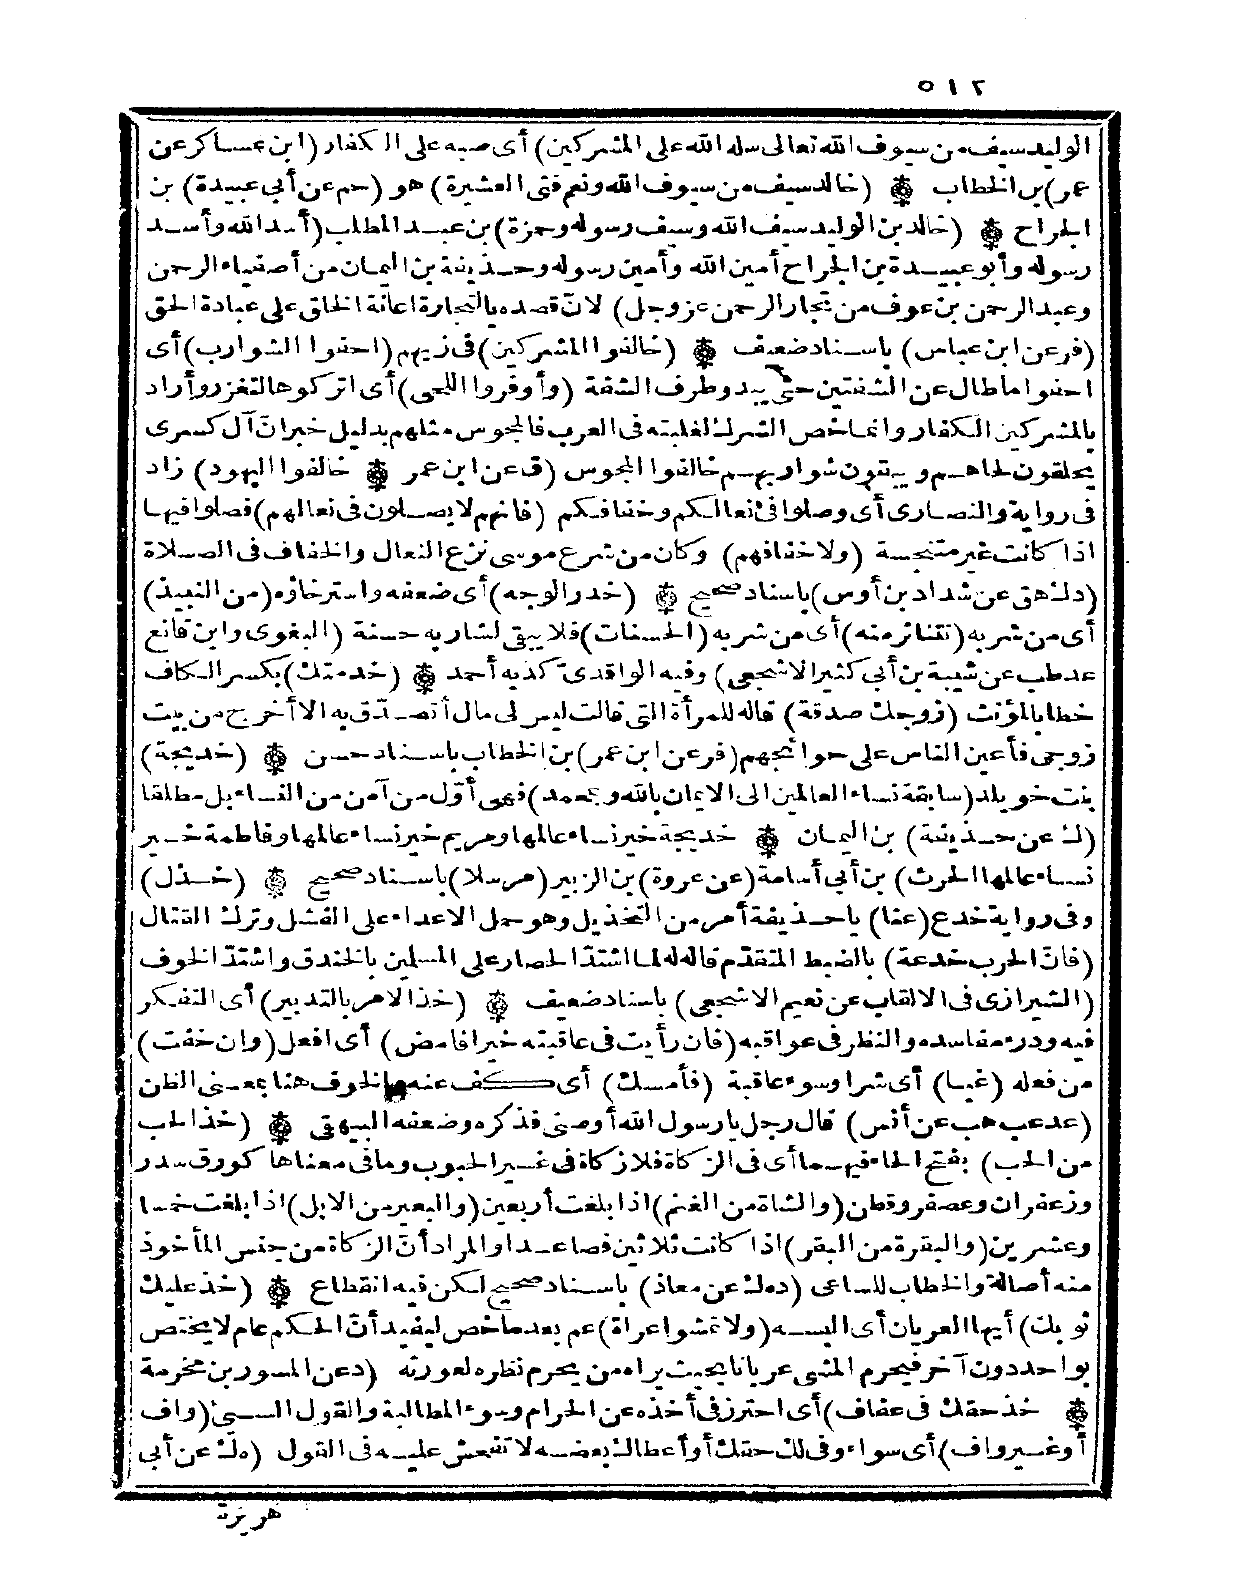 ٥١٢
الوليد سيف من سيوف الله تعالى سله الله على المشركين) أى صبه على الكفار (ابن عساكر عن
عمر) بن الخطاب ۞ (خالد سيف من سيوف الله ونعم فتى العشيرة) هو (حم عن أبى عبيدة) بن
الجراح ۞ (خالد بن الوليد سيف الله وسيف رسوله وحمزة) بن عبد المطلب (أسد الله وأسد
رسوله وأبو عبيدة بن الجراح أمين الله وأمين رسوله وحذيفة بن اليمان من أصفياء الرحمن
وعبد الرحمن بن عوف من تجار الرحمن عز وجل) لانّ قصده بالتجارة اعانة الخلق على عبادة الحق
(فر عن ابن عباس) باسناد ضعيف ۞ (خالفوا المشركين) فى زيهم (احفوا الشوارب) أى
احفوا ما طال عن الشفتين حتى يبد وطرف الشفة (وأوفروا اللحى) أى اتركوها لتغزر وأراد
بالمشركين الكفار وانما خص الشرك لغلبته فى العرب فالمجوس مثلهم بدليل خبر انّ آل كسرى
يحلقون لحاهم ويبقون شواربهم خالفوا المجوس (ق عن ابن عمر ۞ خالفوا اليهود) زاد
فى رواية والنصارى أى وصلوا فى نعالكم وخفافكم (فانهم لا يصلون فى نعالهم) فصلوا فيها
اذا كانت غير متنجسة (ولا خفافهم) وكان من شرع موسى نزع النعال والخفاف فى الصلاة
(د ك هق عن شداد بن أوس) باسناد صحيح ۞ (خدر الوجه) أى ضعفه واسترخاؤه (من النبيذ)
أى من شربه (تتناثر منه) أى من شربه (الحسنات) فلا يبقى لشاربه حسنة (البغوى وابن قانع
عد طب عن شيبة بن أبى كثير الاشجعى) وفيه الواقدىّ كذبه أحمد ۞ (خدمتك) بكسر الكاف
خطابا لمؤنث (زوجك صدقة) قاله للمرأة التى قالت ليس لى مال أتصدّق به الا أخرج من بيت
زوجى فأعين الناس على حوائجهم (فر عن ابن عمر) بن الخطاب باسناد حسن ۞ (خديجة)
بنت خويلد (سابقة نساء العالمين الى الايمان بالله وبمحمد) فهى أوّل من آمن من النساء بل مطلقا
(ك عن حذيفة) بن اليمان ۞ خديجة خير نساء عالمها ومريم خير نساء عالمها وفاطمة خير
نساء عالمها الحرث) بن أبى أسامة (عن عروة) بن الزبير (مرسلا) باسناد صحيح ۞ (خذل)
وفى رواية خدع (عنا) يا حذيفة أمر من التخذيل وهو حمل الاعداء على الفشل وترك القتال
(فانّ الحرب خدعة) بالضبط المتقدّم قاله له لما اشتدّ الحصار على المسلمين بالخندق واشتدّ الخوف
(الشيرازى فى الالقاب عن نعيم الاشجعى) باسناد ضعيف ۞ (خذ الامر بالتدبير) أى التفكر
فيه ودرء مفاسده والنظر فى عواقبه (فان رأيت فى عاقبته خيرا فامض) أى افعل (وان خفت)
من فعله (غيا) أى شرا وسوء عاقبة (فأمسك) أى كف عنه والخوف هنا بمعنى الظن
(عد عب هب عن أنس) قال رجل يا رسول الله أوصنى فذكره وضعفه البيهقى ۞ (خذ الحب
من الحب) بفتح الحاء فيهما أى فى الزكاة فلا زكاة فى غير الحبوب وما فى معناها كورق سدر
وزعفران وعصفر وقطن (والشاة من الغنم) اذا بلغت أربعين (والبعير من الابل) اذا بلغت خمسا
وعشرين (والبقرة من البقر) اذا كانت ثلاثين فصاعدا والمراد أنّ الزكاة من جنس المأخوذ
منه أصالة والخطاب للساعى (د ه ك عن معاذ) باسناد صحيح لكن فيه انقطاع ۞ (خذ عليك
ثوبك) أيها العريان أى البسه (ولا تمشوا عراة) عم بعد ما خص ليفيد أنّ الحكم عام لا يختص
بواحد دون آخر فيحرم المشى عريانا بحيث يراه من يحرم نظره لعورته (د عن المسور بن مخرمة
۞ خذ حقك فى عفاف) أى احترز فى أخذه عن الحرام وسوء المطالبة والقول السىء (واف
أو غير واف) أى سواء وفى لك حقك أو أعطاك بعضه لا تفحش عليه فى القول (ه ك عن أبى
هريرة